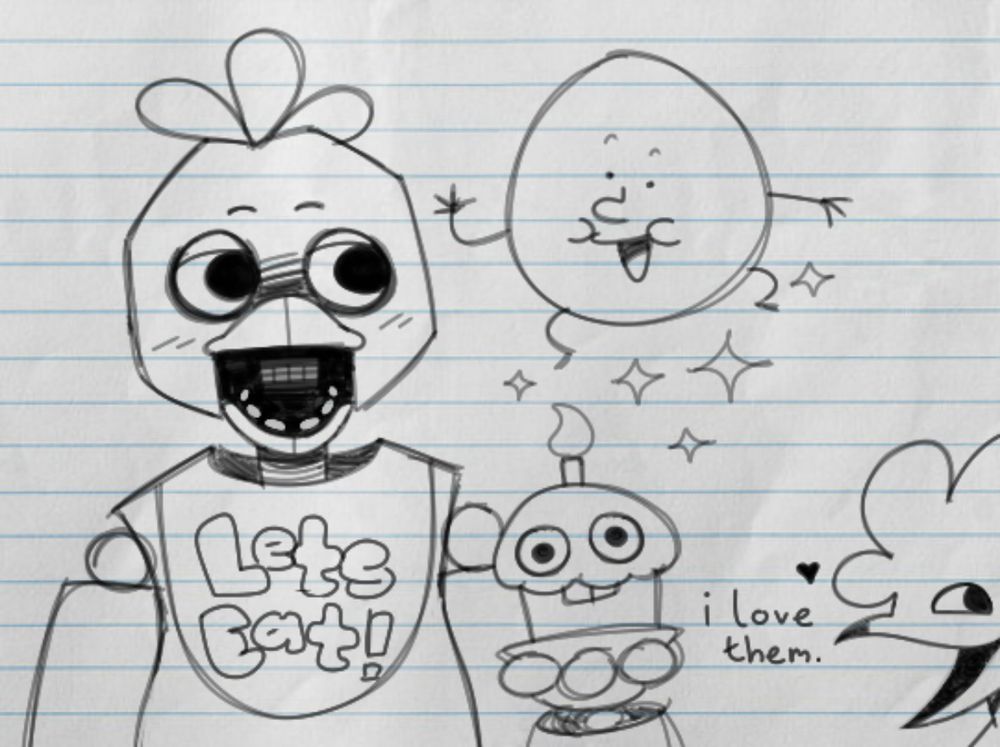 Lets
Eat!
i love
them.